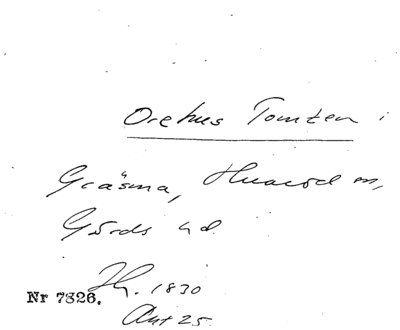 Orehus Tomten i
Gräsma, Huaröd sn,
Gärds hd
Hg. 1830
Nr 7326.
Akt 25